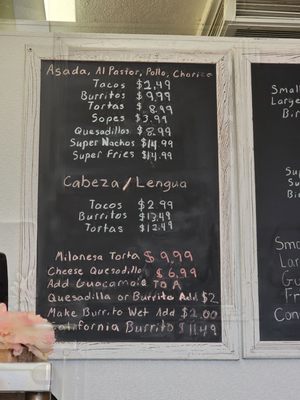 Asada, Al Pastor, Pollo, Chorizo
Tacos $2.49
Burritos $9.99
Tortas $8.99
Sopes $3.99
Quesadillos $8.99
Super Nachos $14.99
Super Fries $14.99
Cabeza/Lengua
Tacos $2.99
Burritos $13.49
Tortas $12.49
Milanesa Torta $9.99
Cheese Quesadilla $6.99
Add Guacamole To A
Quesadilla or Burrito Add $2
Make Burrito Wet Add $2.00
California Burrito $11.49
Small
Large
Bir
Sup
Su
Bir
Sma
Lar
Gu
Fri
Con